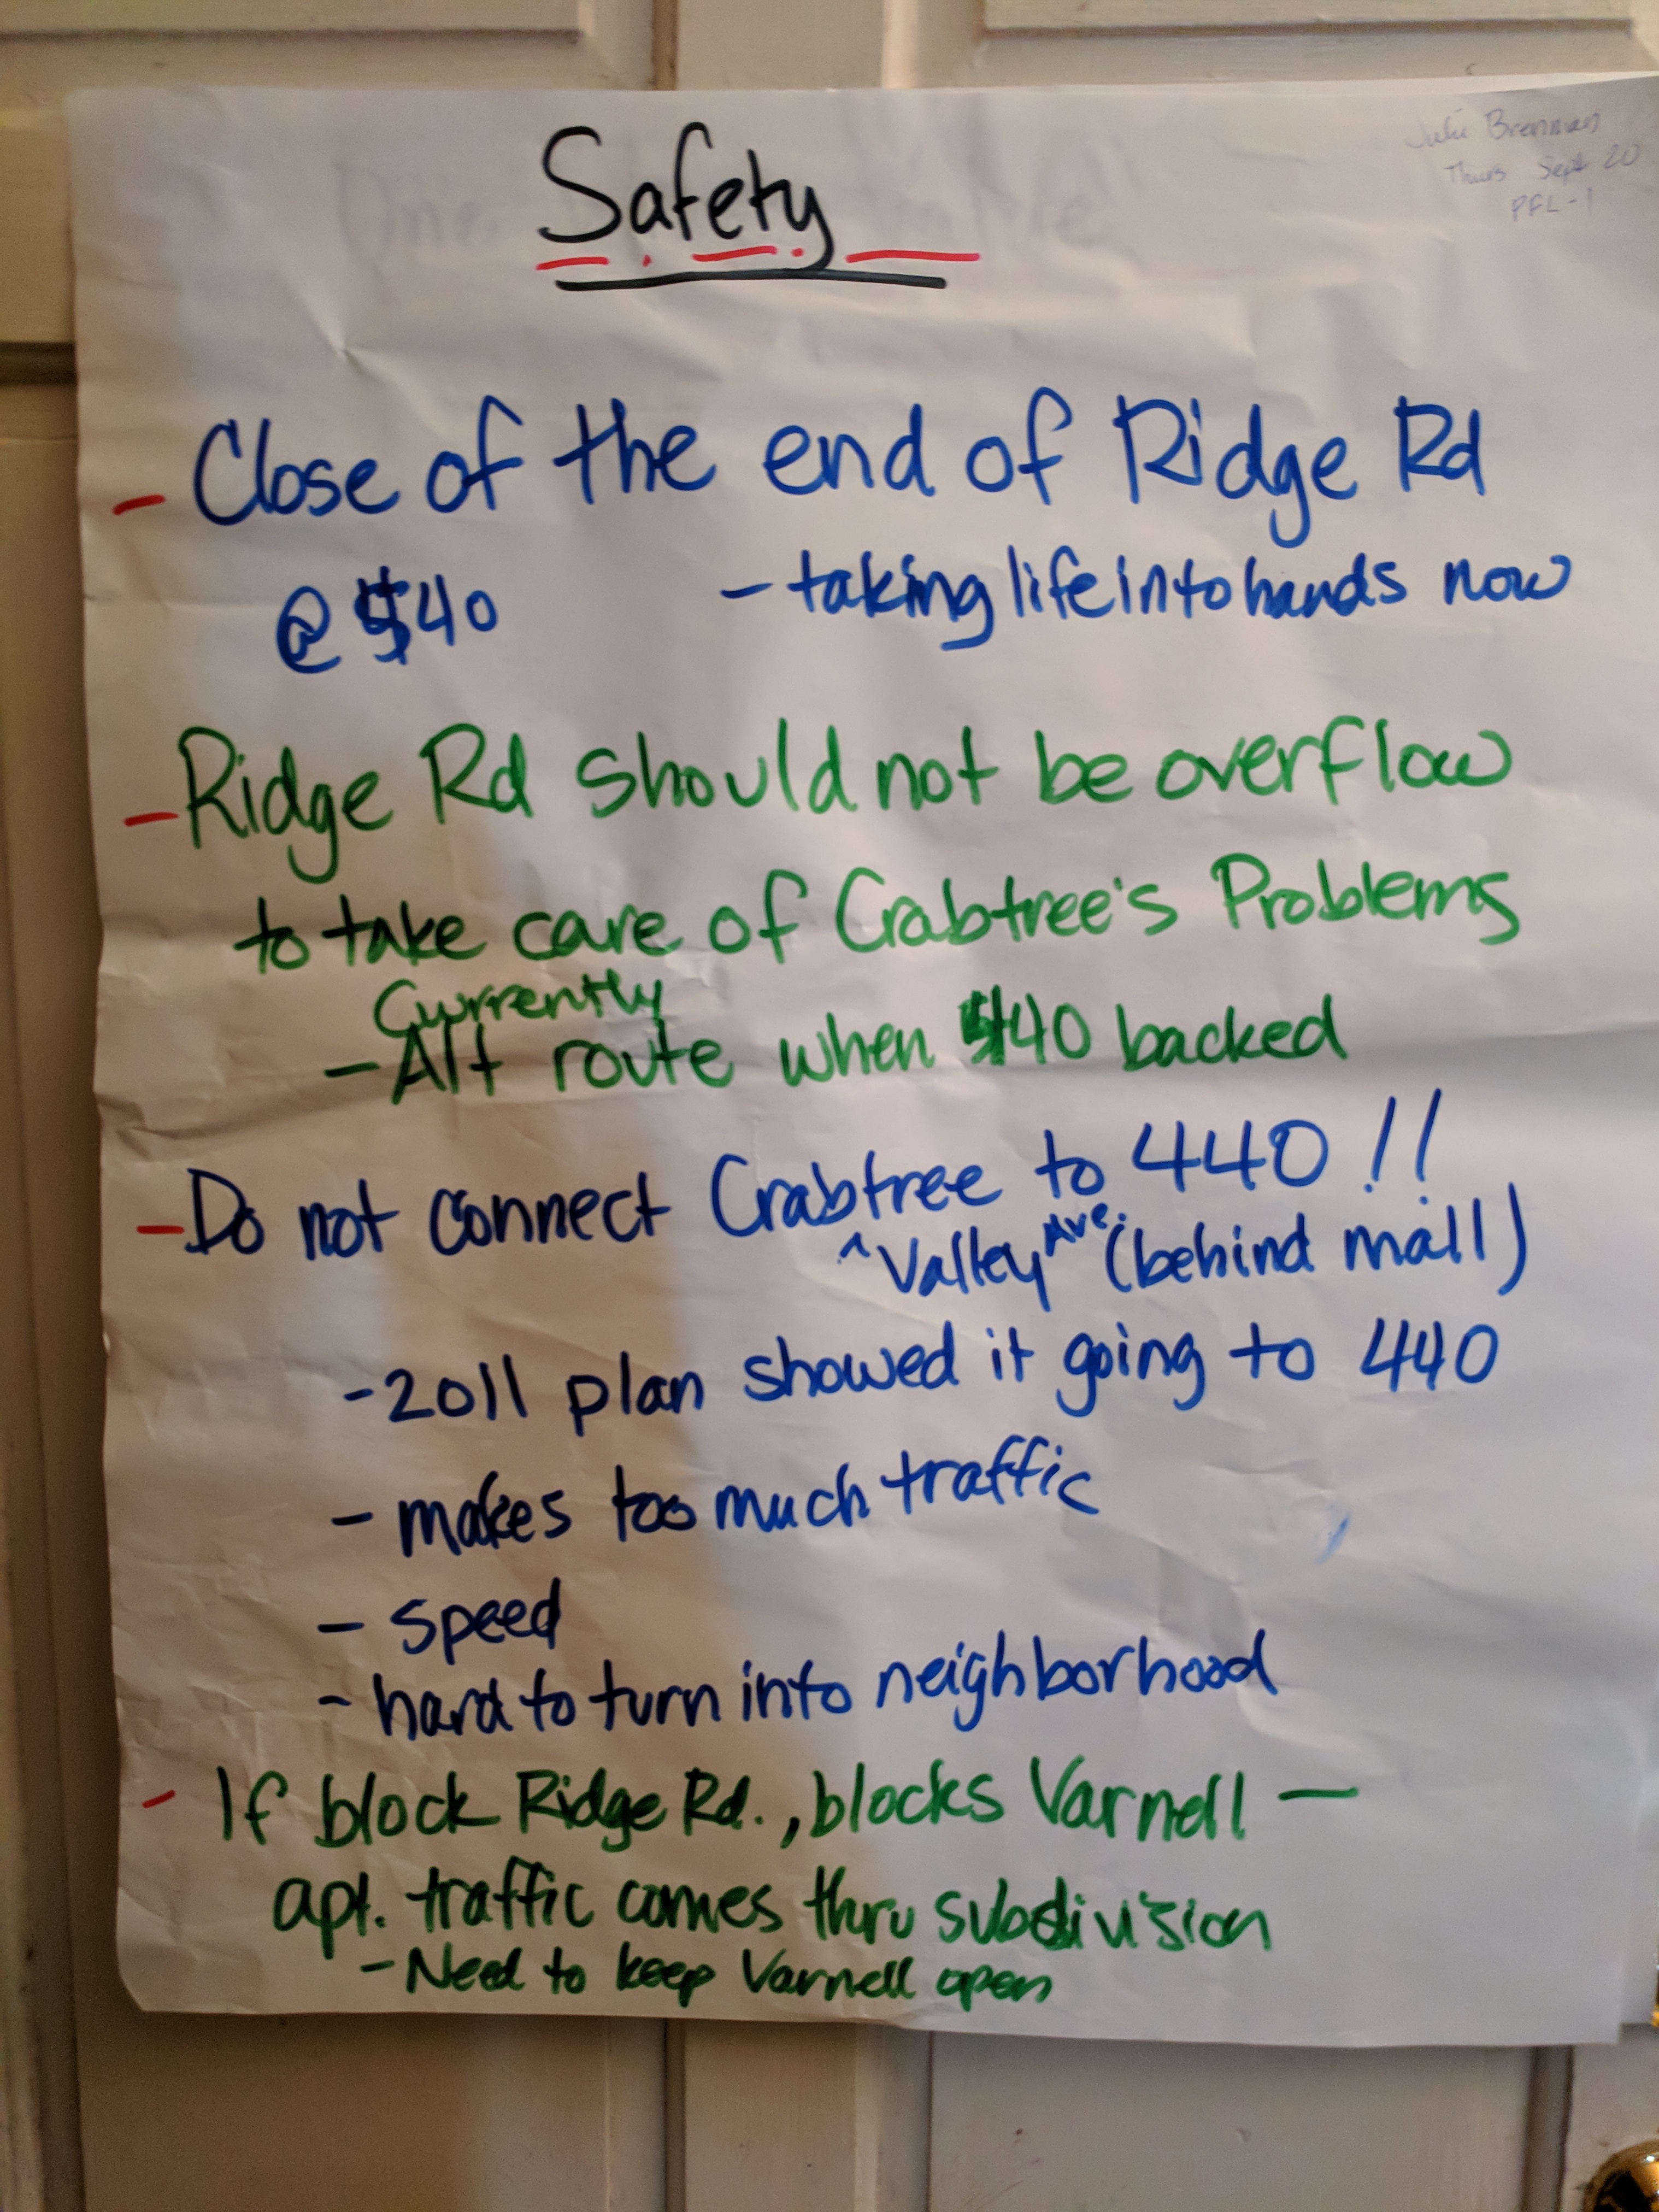 Safety
Julie Brennan
Thurs Sept 20
PFL-1
- Close of the end of Ridge Rd
@ 440 - taking life into hands now
- Ridge Rd should not be overflow
to take care of Crabtree's Problems
Currently
- Alt route when 440 backed
- Do not connect Crabtree to 440 !!
^ Valley Ave. (behind mall)
- 2011 plan showed it going to 440
- makes too much traffic
- speed
- hard to turn into neighborhood
- If block Ridge Rd., blocks Varnell -
apt. traffic comes thru subdivision
- Need to keep Varnell open